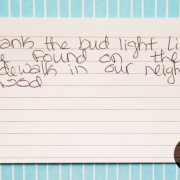 ank the bud light li
found on the
dewalk in our neigh
ood